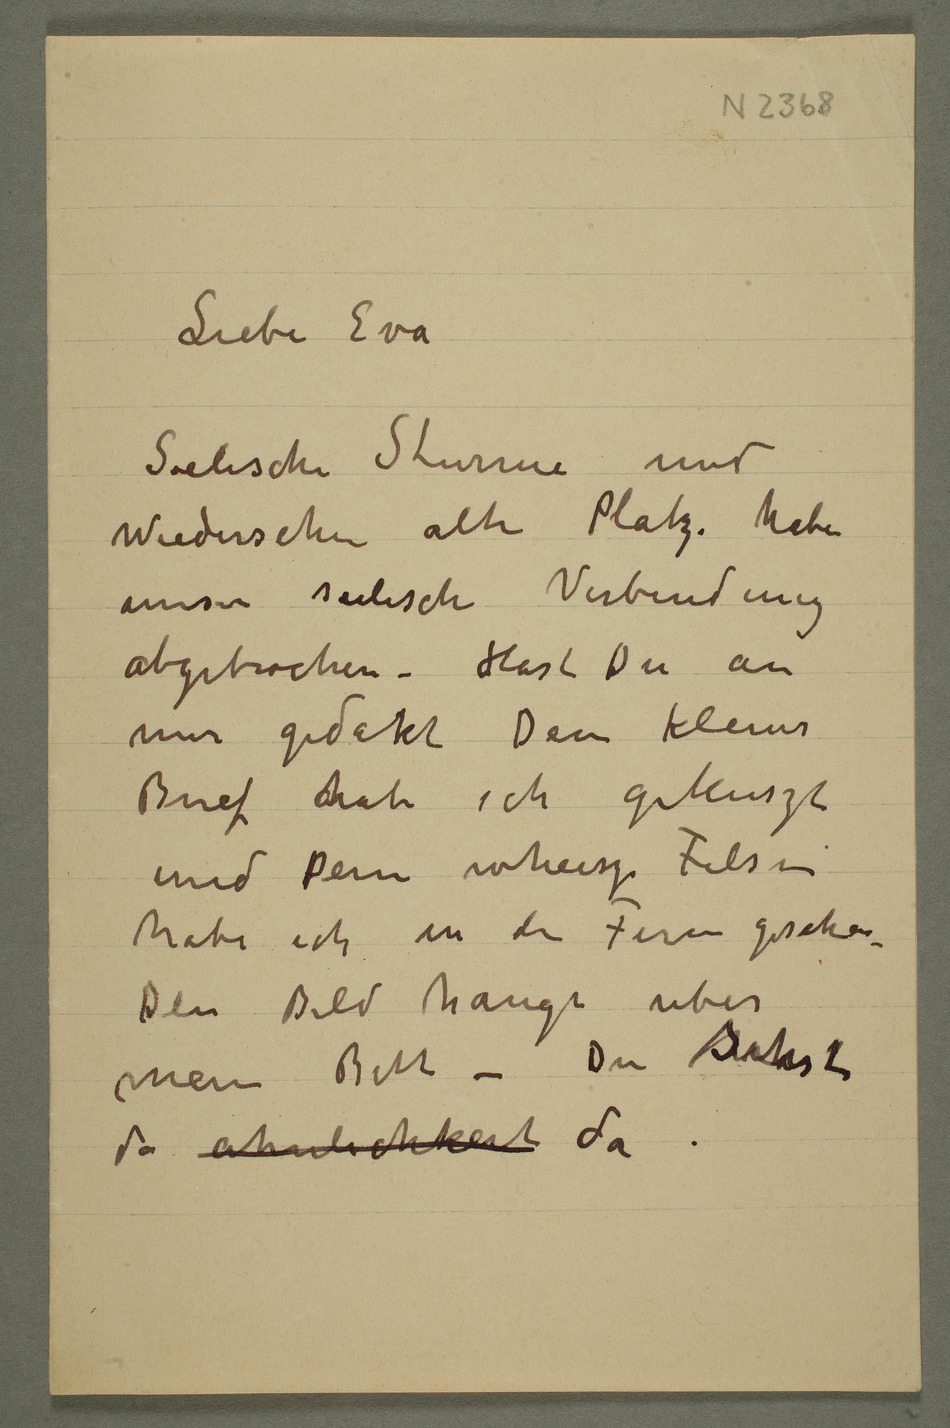 N 2368
Liebe Eva
Seelische Sturme und
Wiedersehen alte Platze haben
unsre seelische Verbindung
abgebrochen – Hast Du an
mir gedakt Dein kleiner
Brief habe ich gekuszt
und Dein wheisze Felsen
habe ich in der Ferne gesehen –
Dein Bild hangt uber
mein Bett – Du
da ahnlichkeit da .